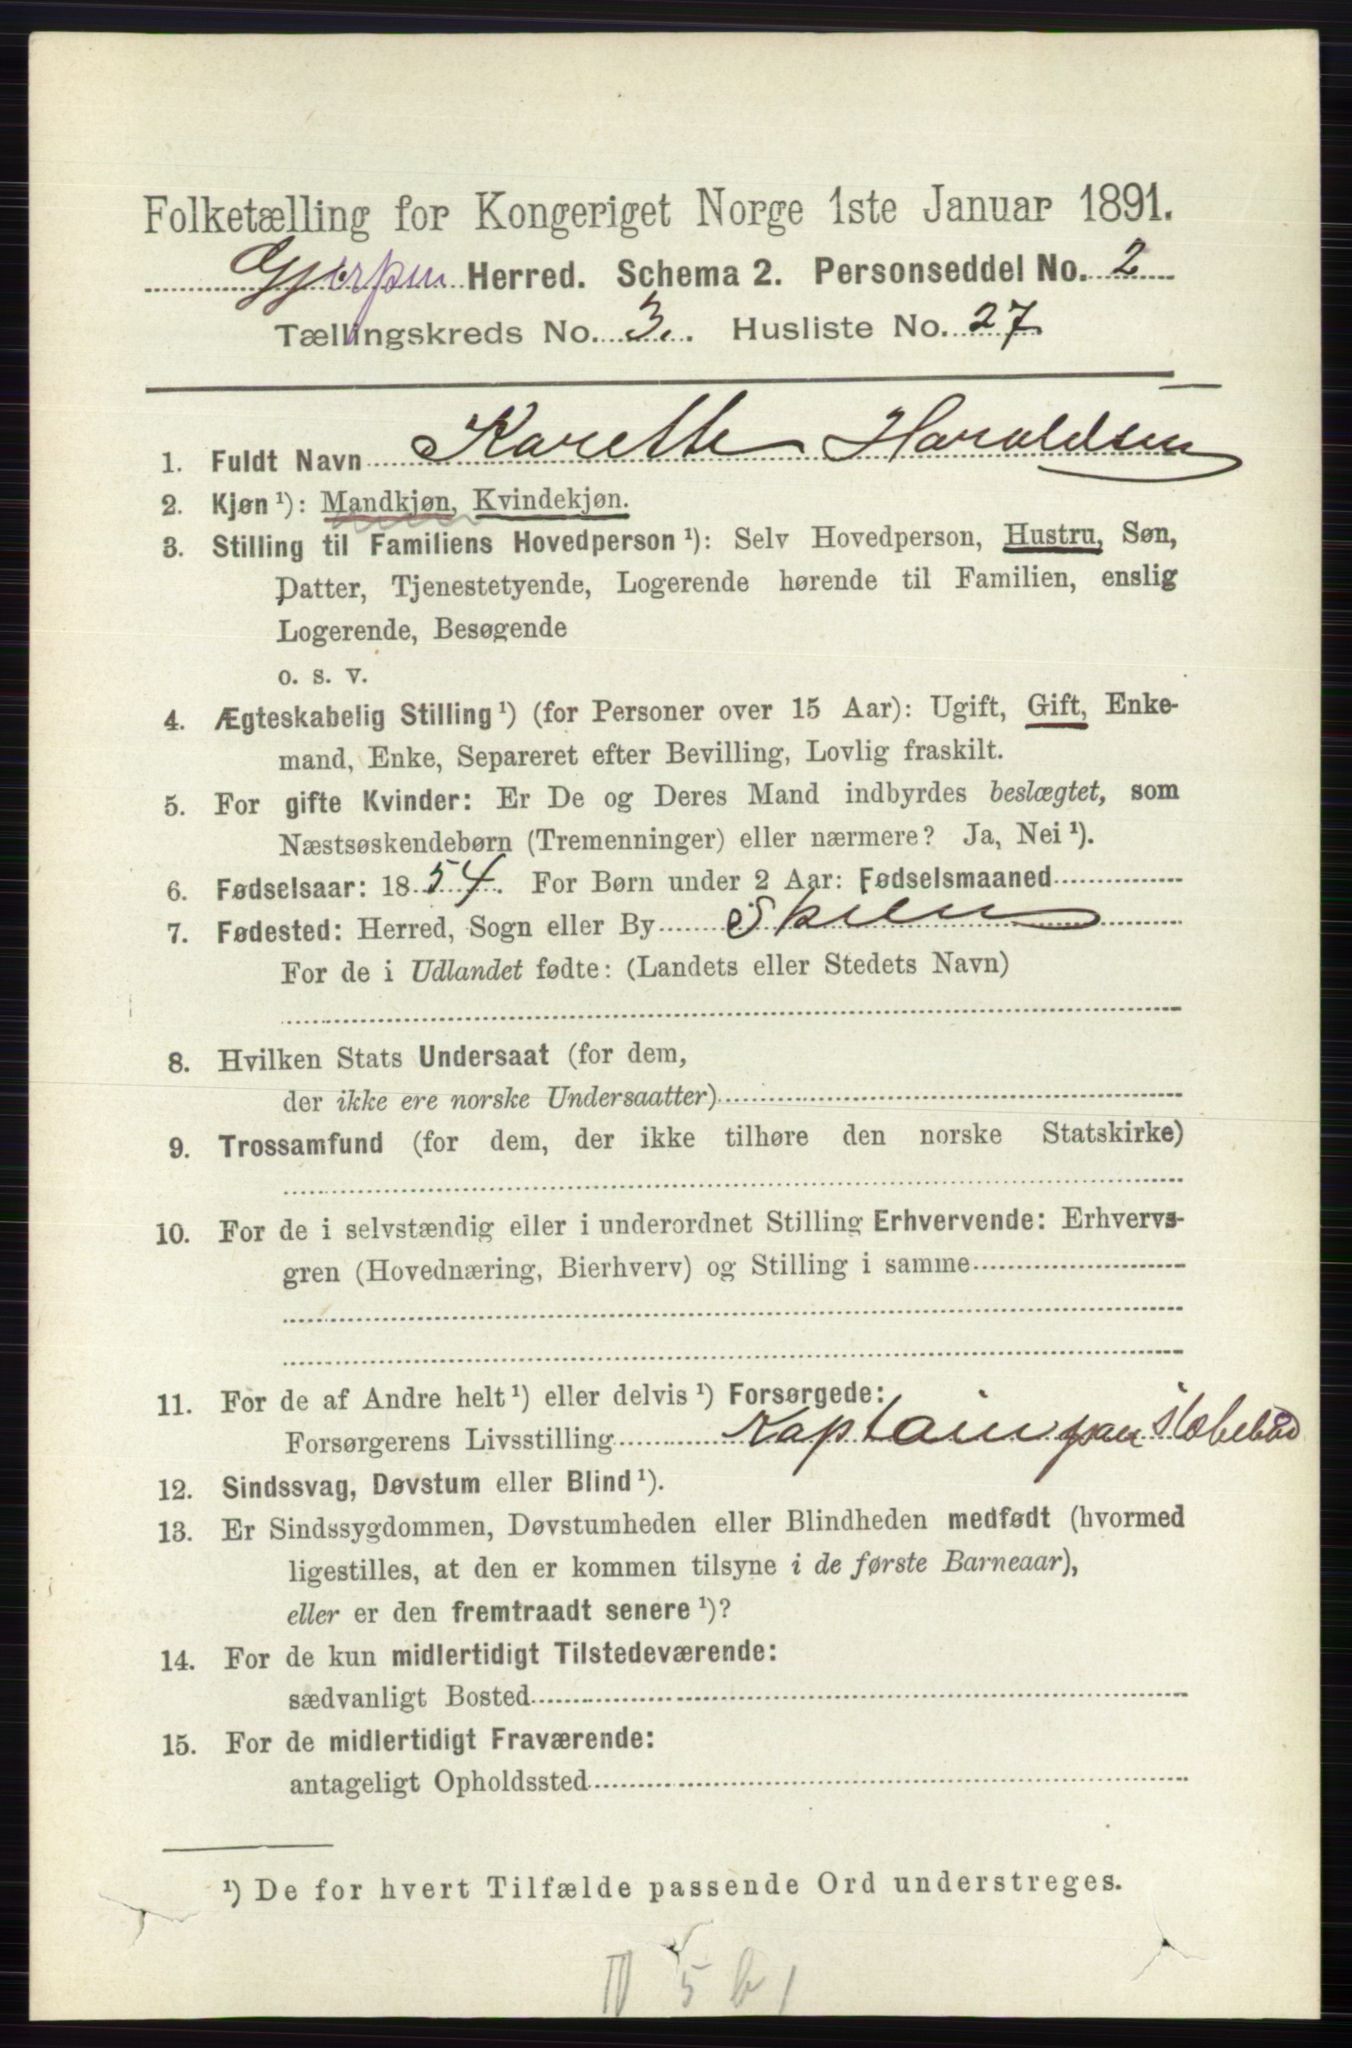 Folketælling for Kongeriget Norge 1ste Januar 1891.
Gjerpen Herred. Schema 2. Personseddel No. 2
Tællingskreds No. 3. Husliste No. 27
1. Fuldt Navn Karette Haraldsen
2. Kjøn ¹): Mandkjøn, Kvindekjøn.
3. Stilling til Familiens Hovedperson ¹): Selv Hovedperson, Hustru, Søn,
Datter, Tjenestetyende, Logerende hørende til Familien, enslig
Logerende, Besøgende
o. s. v.
4. Ægteskabelig Stilling ¹) (for Personer over 15 Aar): Ugift, Gift, Enke-
mand, Enke, Separeret efter Bevilling, Lovlig fraskilt.
5. For gifte Kvinder: Er De og Deres Mand indbyrdes beslægtet, som
Næstsøskendebørn (Tremenninger) eller nærmere? Ja, Nei ¹).
6. Fødselsaar: 1854. For Børn under 2 Aar: Fødselsmaaned
7. Fødested: Herred, Sogn eller By Skien
For de i Udlandet fødte: (Landets eller Stedets Navn)
8. Hvilken Stats Undersaat (for dem,
der ikke ere norske Undersaatter)
9. Trossamfund (for dem, der ikke tilhøre den norske Statskirke)
10. For de i selvstændig eller i underordnet Stilling Erhvervende: Erhvervs-
gren (Hovednæring, Bierhverv) og Stilling i samme
11. For de af Andre helt ¹) eller delvis ¹) Forsørgede:
Forsørgerens Livsstilling Kaptain paa Slæbebåd
12. Sindssvag, Døvstum eller Blind ¹).
13. Er Sindssygdommen, Døvstumheden eller Blindheden medfødt (hvormed
ligestilles, at den er kommen tilsyne i de første Barneaar),
eller er den fremtraadt senere ¹)?
14. For de kun midlertidigt Tilstedeværende:
sædvanligt Bosted
15. For de midlertidigt Fraværende:
antageligt Opholdssted
¹) De for hvert Tilfælde passende Ord understreges.
IV 5 b 1